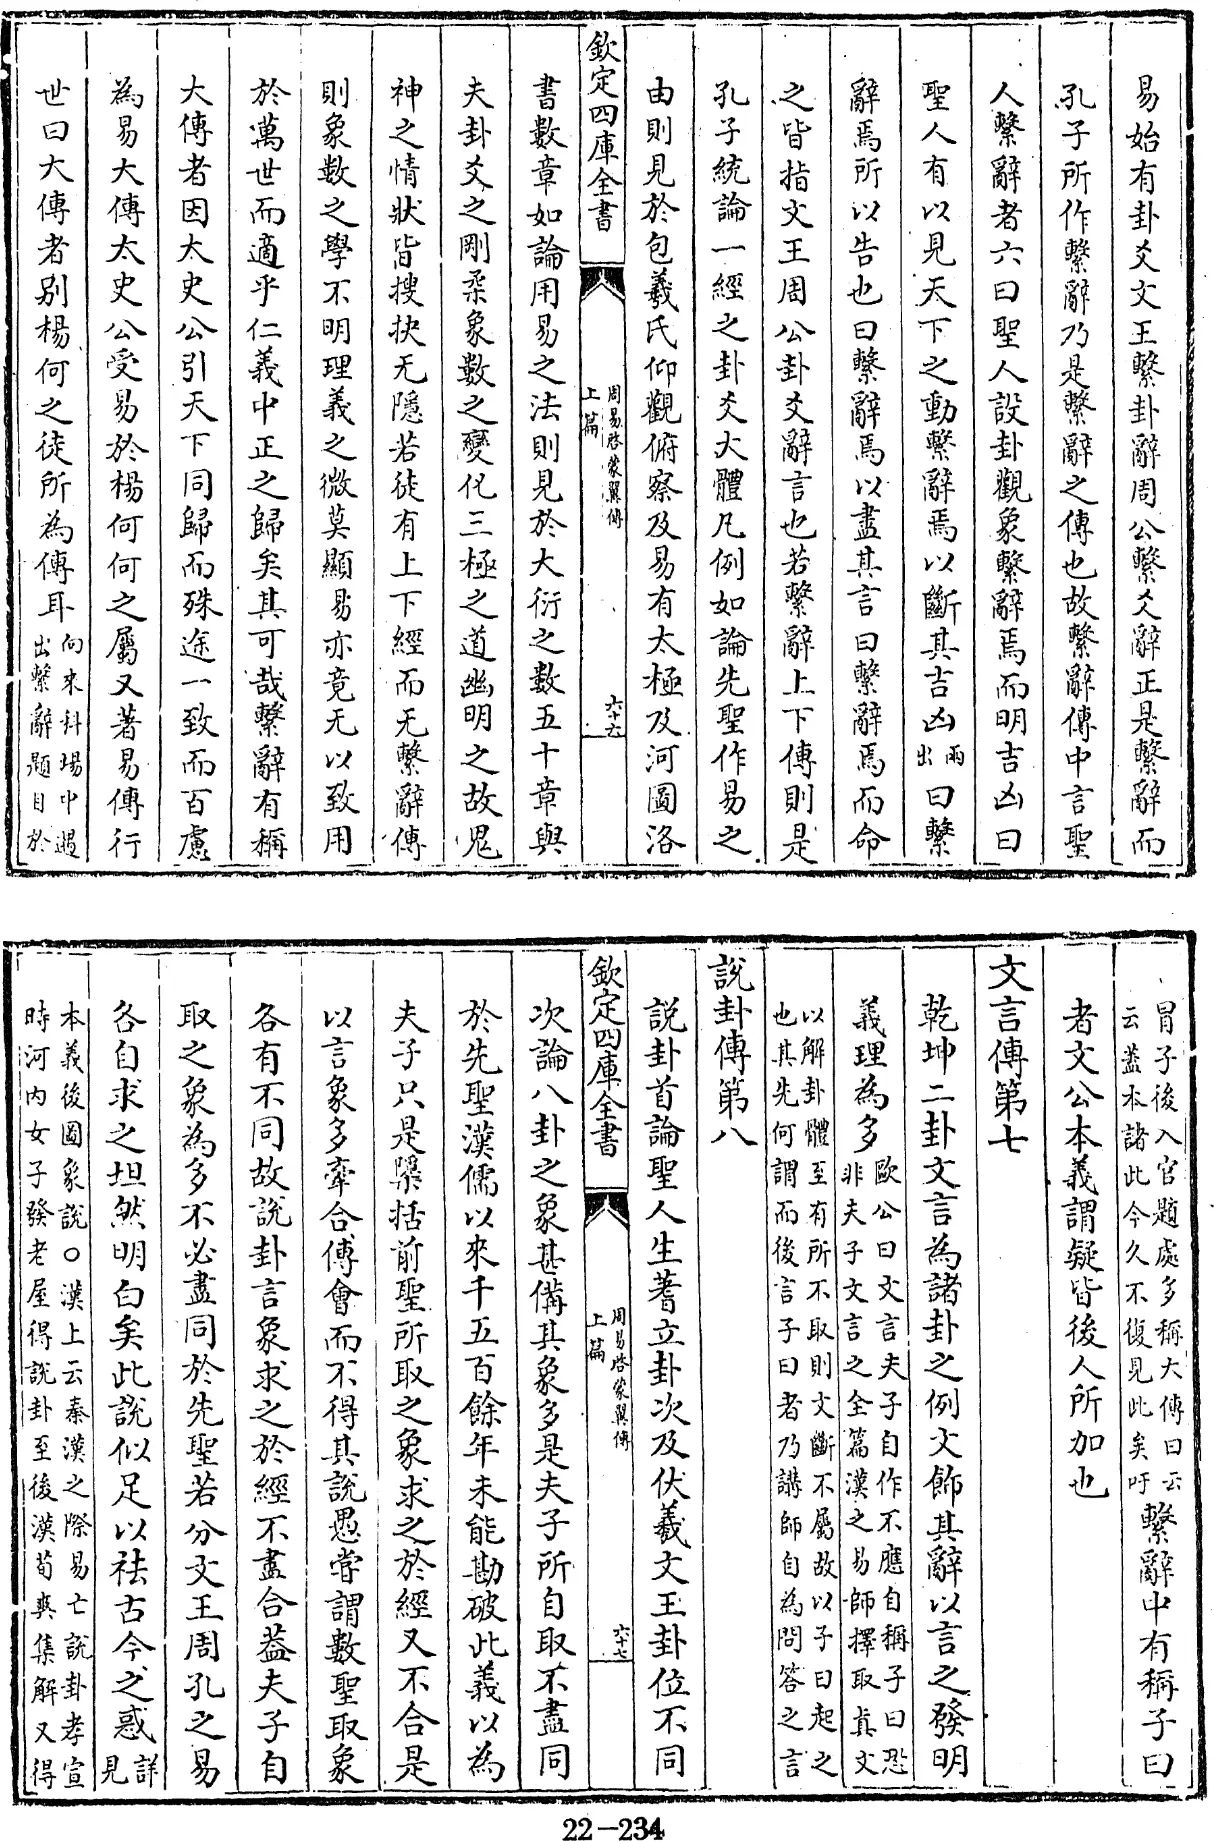 易始有卦爻文王繫卦辭周公繫爻辭正是繫辭而
孔子所作繫辭乃是繫辭之傳也故繫辭傳中言聖
人繫辭者六曰聖人設卦觀象繫辭焉而明吉凶曰
聖人有以見天下之動繫辭焉以斷其吉凶兩出曰繫
辭焉所以告也曰繫辭焉以盡其言曰繫辭焉而命
之皆指文王周公卦爻辭言也若繫辭上下傳則是
孔子統論一經之卦爻大體凡例如論先聖作易之
由則見於包羲氏仰觀俯察及易有太極及河圖洛
欽定四庫全書
周易啓蒙翼傳
上篇
六十六
書數章如論用易之法則見於大衍之數五十章與
夫卦爻之剛柔象數之變化三極之道幽明之故鬼
神之情狀皆搜抉无隱若徒有上下經而无繫辭傳
則象數之學不明理義之微莫顯易亦竟无以致用
於萬世而適乎仁義中正之歸矣其可哉繫辭有稱
大傳者因太史公引天下同歸而殊途一致而百慮
為易大傳太史公受易於楊何何之屬又著易傳行
世曰大傳者別楊何之徒所為傳耳向來科場中遇
出繫辭題目於
冒子後入官題處多稱大傳曰云
云蓋本諸此今久不復見此矣吁繫辭中有稱子曰
者文公本義謂疑皆後人所加也
文言傳第七
乾坤二卦文言為諸卦之例文飾其辭以言之發明
義理為多歐公曰文言夫子自作不應自稱子曰恐
非夫子文言之全篇漢之易師擇取真文
以解卦體至有所不取則文斷不屬故以子曰起之
也其先何謂而後言子曰者乃講師自為問答之言
說卦傳第八
說卦首論聖人生蓍立卦次及伏羲文王卦位不同
欽定四庫全書
周易啓蒙翼傳
上篇
六十七
次論八卦之象甚備其象多是夫子所自取不盡同
於先聖漢儒以來千五百餘年未能勘破此義以為
夫子只是檃括前聖所取之象求之於經又不合是
以言象多牽合傅會而不得其說愚嘗謂數聖取象
各有不同故說卦言象求之於經不盡合葢夫子自
取之象為多不必盡同於先聖若分文王周孔之易
各自求之坦然明白矣此說似足以袪古今之惑詳
見
本義後圖象說○漢上云秦漢之際易亡說卦孝宣
時河內女子發老屋得說卦至後漢荀爽集解又得
22-234